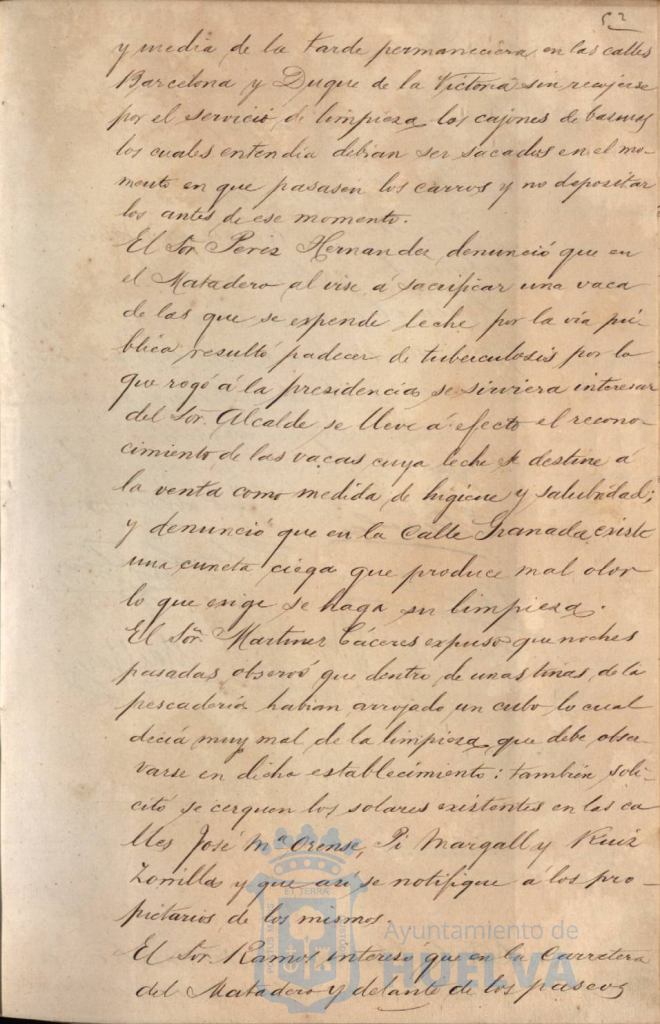 52
y media de la tarde permaneciera en las calles
Barcelona y Duque de la Victoria sin recojerse
por el servicio de limpieza los cajones de basuras
los cuales entendia debian ser sacados en el mo-
mento en que pasasen los carros y no depositar
los antes de ese momento.
El Sor. Perez Hernandez denunció que en
el Matadero al irse á sacrificar una vaca
de las que se expende leche por la via pú-
blica resultó padecer de tuberculosis por lo
que rogó á la presidencia se sirviera interesar
del Sor. Alcalde se lleve á efecto el recono-
cimiento de las vacas cuya leche se destine á
la venta como medida de higiene y salubridad;
y denunció que en la Calle Granada existe
una cuneta ciega que produce mal olor
lo que exige se haga su limpieza.
El Sor. Martinez Cáceres expuso que noches
pasadas observó que dentro de unas tinas de la
pescadería habian arrojado un cubo lo cual
decía muy mal de la limpieza que debe obser-
varse en dicho establecimiento: también soli-
citó se cerquen los solares existentes en las ca
lles José Mª Orense, Pi Margall y Ruiz
Zorrilla y que así se notifique á los pro-
pietarios de los mismos.
El Sor. Ramos interesó que en la Carretera
del Matadero y delante de los paseos
Ayuntamiento de
HUELVA